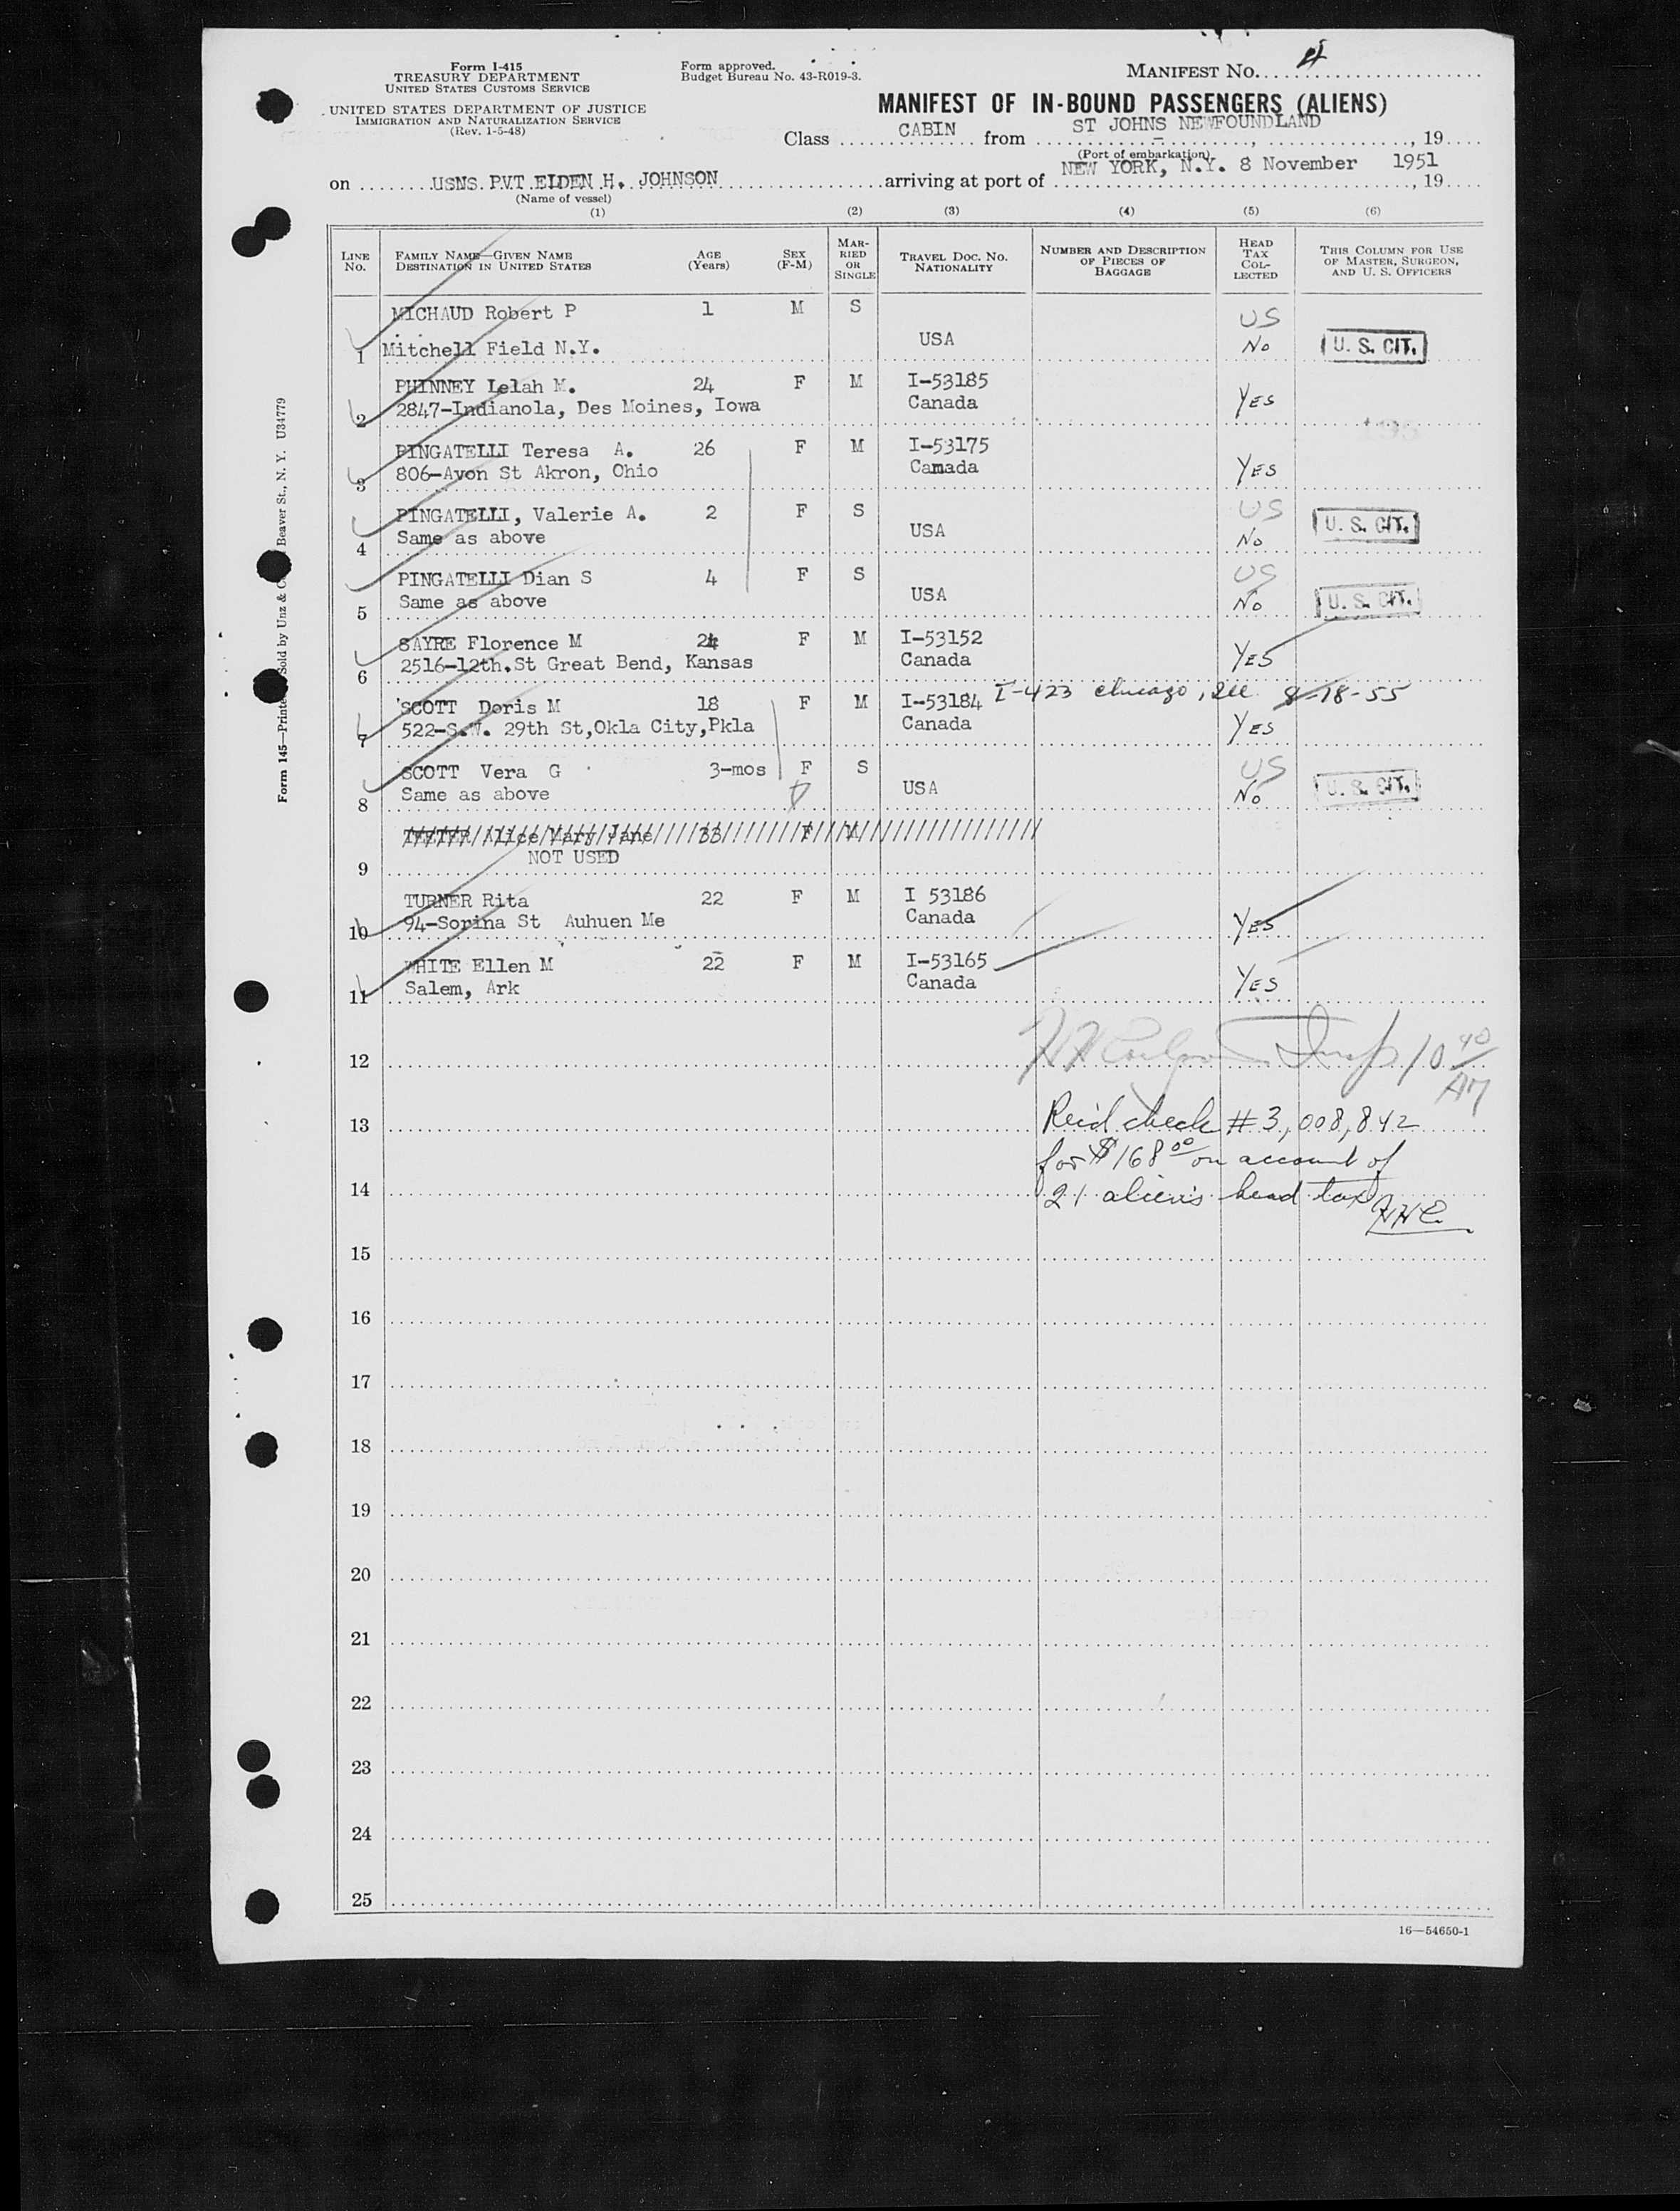 Form I-415
TREASURY DEPARTMENT
UNITED STATES CUSTOMS SERVICE
UNITED STATES DEPARTMENT OF JUSTICE
IMMIGRATION AND NATURALIZATION SERVICE
(Rev. 1-5-48)
Form approved.
Budget Bureau No. 43-R019-3.
MANIFEST NO. 4
MANIFEST OF IN-BOUND PASSENGERS (ALIENS)
Class CABIN from ST JOHNS NEWFOUNDLAND, 19
(Port of embarkation)
on USNS PVT ELDEN H. JOHNSON arriving at port of NEW YORK, N.Y. 8 November 1951, 19
(Name of vessel)
(1) (2) (3) (4) (5) (6)
LINE No. FAMILY NAME—GIVEN NAME DESTINATION IN UNITED STATES AGE (Years) SEX (F-M) MARRIED OR SINGLE TRAVEL DOC. NO. NATIONALITY NUMBER AND DESCRIPTION OF PIECES OF BAGGAGE HEAD TAX COLLECTED THIS COLUMN FOR USE OF MASTER, SURGEON, AND U. S. OFFICERS
MICHAUD Robert P 1 M S US
1 Mitchell Field N.Y. USA No U. S. CIT.
PHINNEY Lelah M. 24 F M I-53185
2 2847-Indianola, Des Moines, Iowa Canada YES
PINGATELLI Teresa A. 26 F M I-53175
3 806-Avon St Akron, Ohio Canada YES
PINGATELLI, Valerie A. 2 F S US
4 Same as above USA No U. S. CIT.
PINGATELLI Dian S 4 F S US
5 Same as above USA No U. S. CIT.
SAYRE Florence M 24 F M I-53152
6 2516-12th.St Great Bend, Kansas Canada YES
SCOTT Doris M 18 F M I-53184 I-423 Chicago, Ill 8-18-55
7 522-S.W. 29th St,Okla City,Pkla Canada YES
SCOTT Vera G 3-mos F S US
8 Same as above USA No U. S. CIT.
Alice Mary Jane 33 F M
9 NOT USED
TURNER Rita 22 F M I 53186
10 94-Sorina St Auhuen Me Canada YES
WHITE Ellen M 22 F M I-53165
11 Salem, Ark Canada YES
12 Insp 10 40 AM
13 Rec'd check # 3,008,842
for $168 00 on account of
14 21 aliens head tax HHC
15
16
17
18
19
20
21
22
23
24
25
16—54650-1
Form 145—Printed Sold by Unz & Co Beaver St., N. Y. U34779